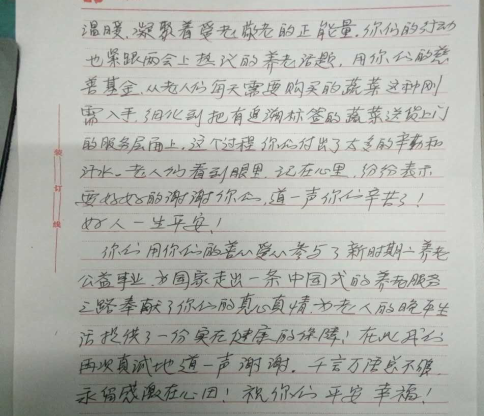 温暖，凝聚着爱老敬老的正能量，你们的行动
也紧跟两会上热议的养老话题，用你们的慈
善基金，从老人们每天需要购买的蔬菜这种刚
需入手，细化到把有追溯标签的蔬菜送货上门
的服务层面上，这个过程你们付出了太多的辛勤和
汗水。老人们看到眼里，记在心里，纷纷表示
要好好的谢谢你们，道一声你们辛苦了！
好人一生平安！
你们用你们的善心爱心参与了新时期的养老
公益事业，为国家走出一条中国式的养老服务
之路奉献了你们的真心真情，为老人的晚年生
活提供了一份实在健康的保障！在此我们
再次真诚地道一声谢谢，千言万语总不够
永留感激在心田！祝你们平安幸福！
装
订
线